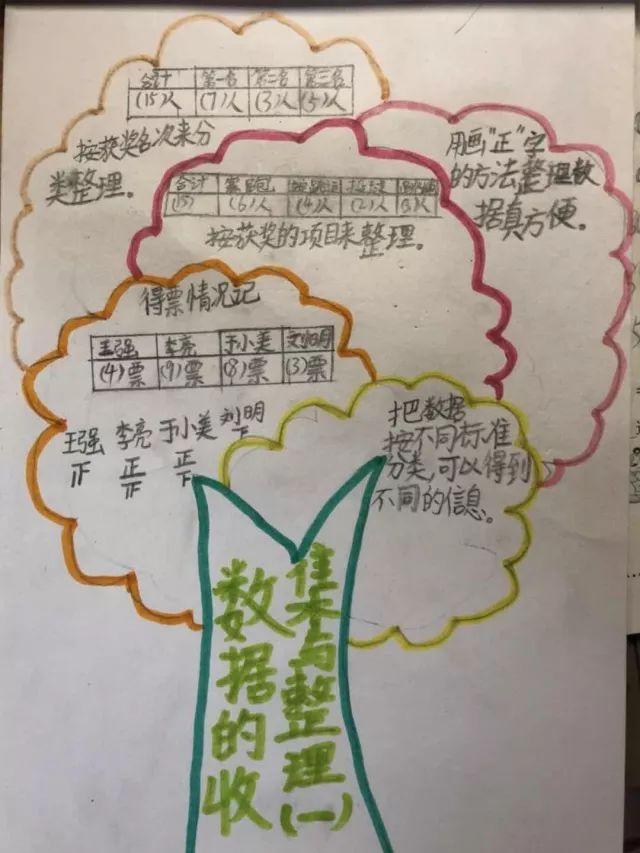 合计 第一名 第二名 第三名
(15)人 (7)人 (3)人 (5)人
按获奖名次来分
类整理。
用画“正”字
的方法整理数
据真方便。
合计
(15) (6)人 (4)人 (2)人 (3)人
按获奖的项目来整理。
得票情况记
王强 李亮 于小美 刘明
(4)票 (9)票 (8)票 (3)票
王强 李亮 于小美 刘明
正
正
把数据
按不同标准
分类,可以得到
不同的信息。
数据的收
集与整理(一)